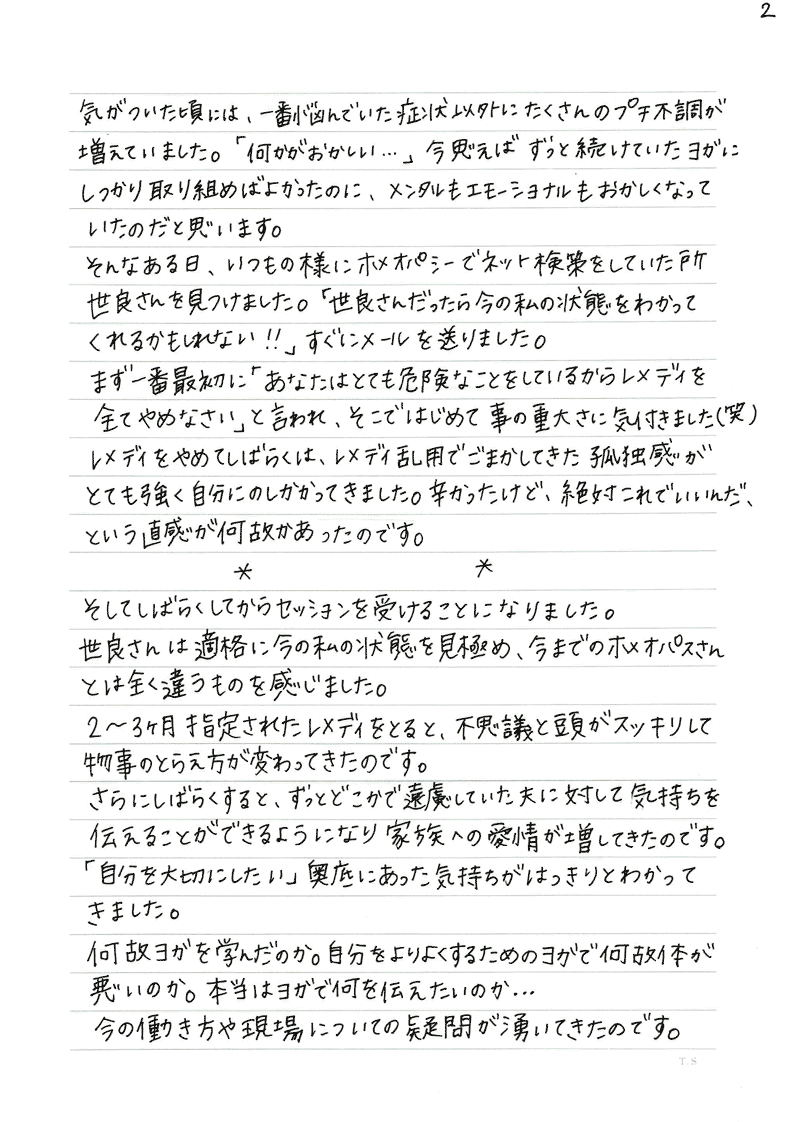 2
気がついた頃には、一番悩んでいた症状以外にたくさんのプチ不調が
増えていました。「何かがおかしい…」今思えばずっと続けていたヨガに
しっかり取り組めばよかったのに、メンタルもエモーショナルもおかしくなって
いたのだと思います。
そんなある日、いつもの様にホメオパシーでネット検築をしていた所
世良さんを見つけました。「世良さんだったら今の私の状態をわかって
くれるかもしれない!!」すぐにメールを送りました。
まず一番最初に「あなたはとても危険なことをしているからレメディを
全てやめなさい」と言われ、そこではじめて事の重大さに気付きました(笑)
レメディをやめてしばらくは、レメディ乱用でごまかしてきた孤独感が
とても強く自分にのしかかってきました。辛かったけど、絶対これでいいんだ、
という直感が何故かあったのです。
* *
そしてしばらくしてからセッションを受けることになりました。
世良さんは適格に今の私の状態を見極め、今までのホメオパスさん
とは全く違うものを感じました。
2〜3ヶ月指定されたレメディをとると、不思議と頭がスッキリして
物事のとらえ方が変わってきたのです。
さらにしばらくすると、ずっとどこかで遠慮していた夫に対して気持ちを
伝えることができるようになり家族への愛情が増してきたのです。
「自分を大切にしたい」奥底にあった気持ちがはっきりとわかって
きました。
何故ヨガを学んだのか。自分をよりよくするためのヨガで何故体が
悪いのか。本当はヨガで何を伝えたいのか…
今の働き方や現場についての疑問が湧いてきたのです。
T.S